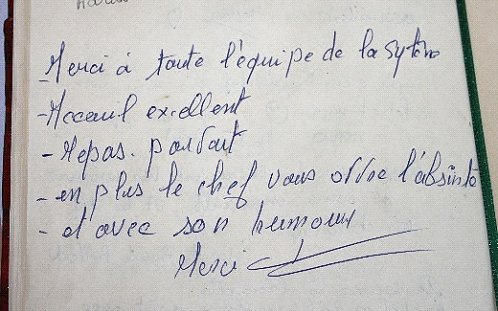 -Merci à toute l'équipe de la
-Acceuil excellent
-Repas. parfait
-en plus le chef vous offre l'absinte
-et avec son humour
Merci